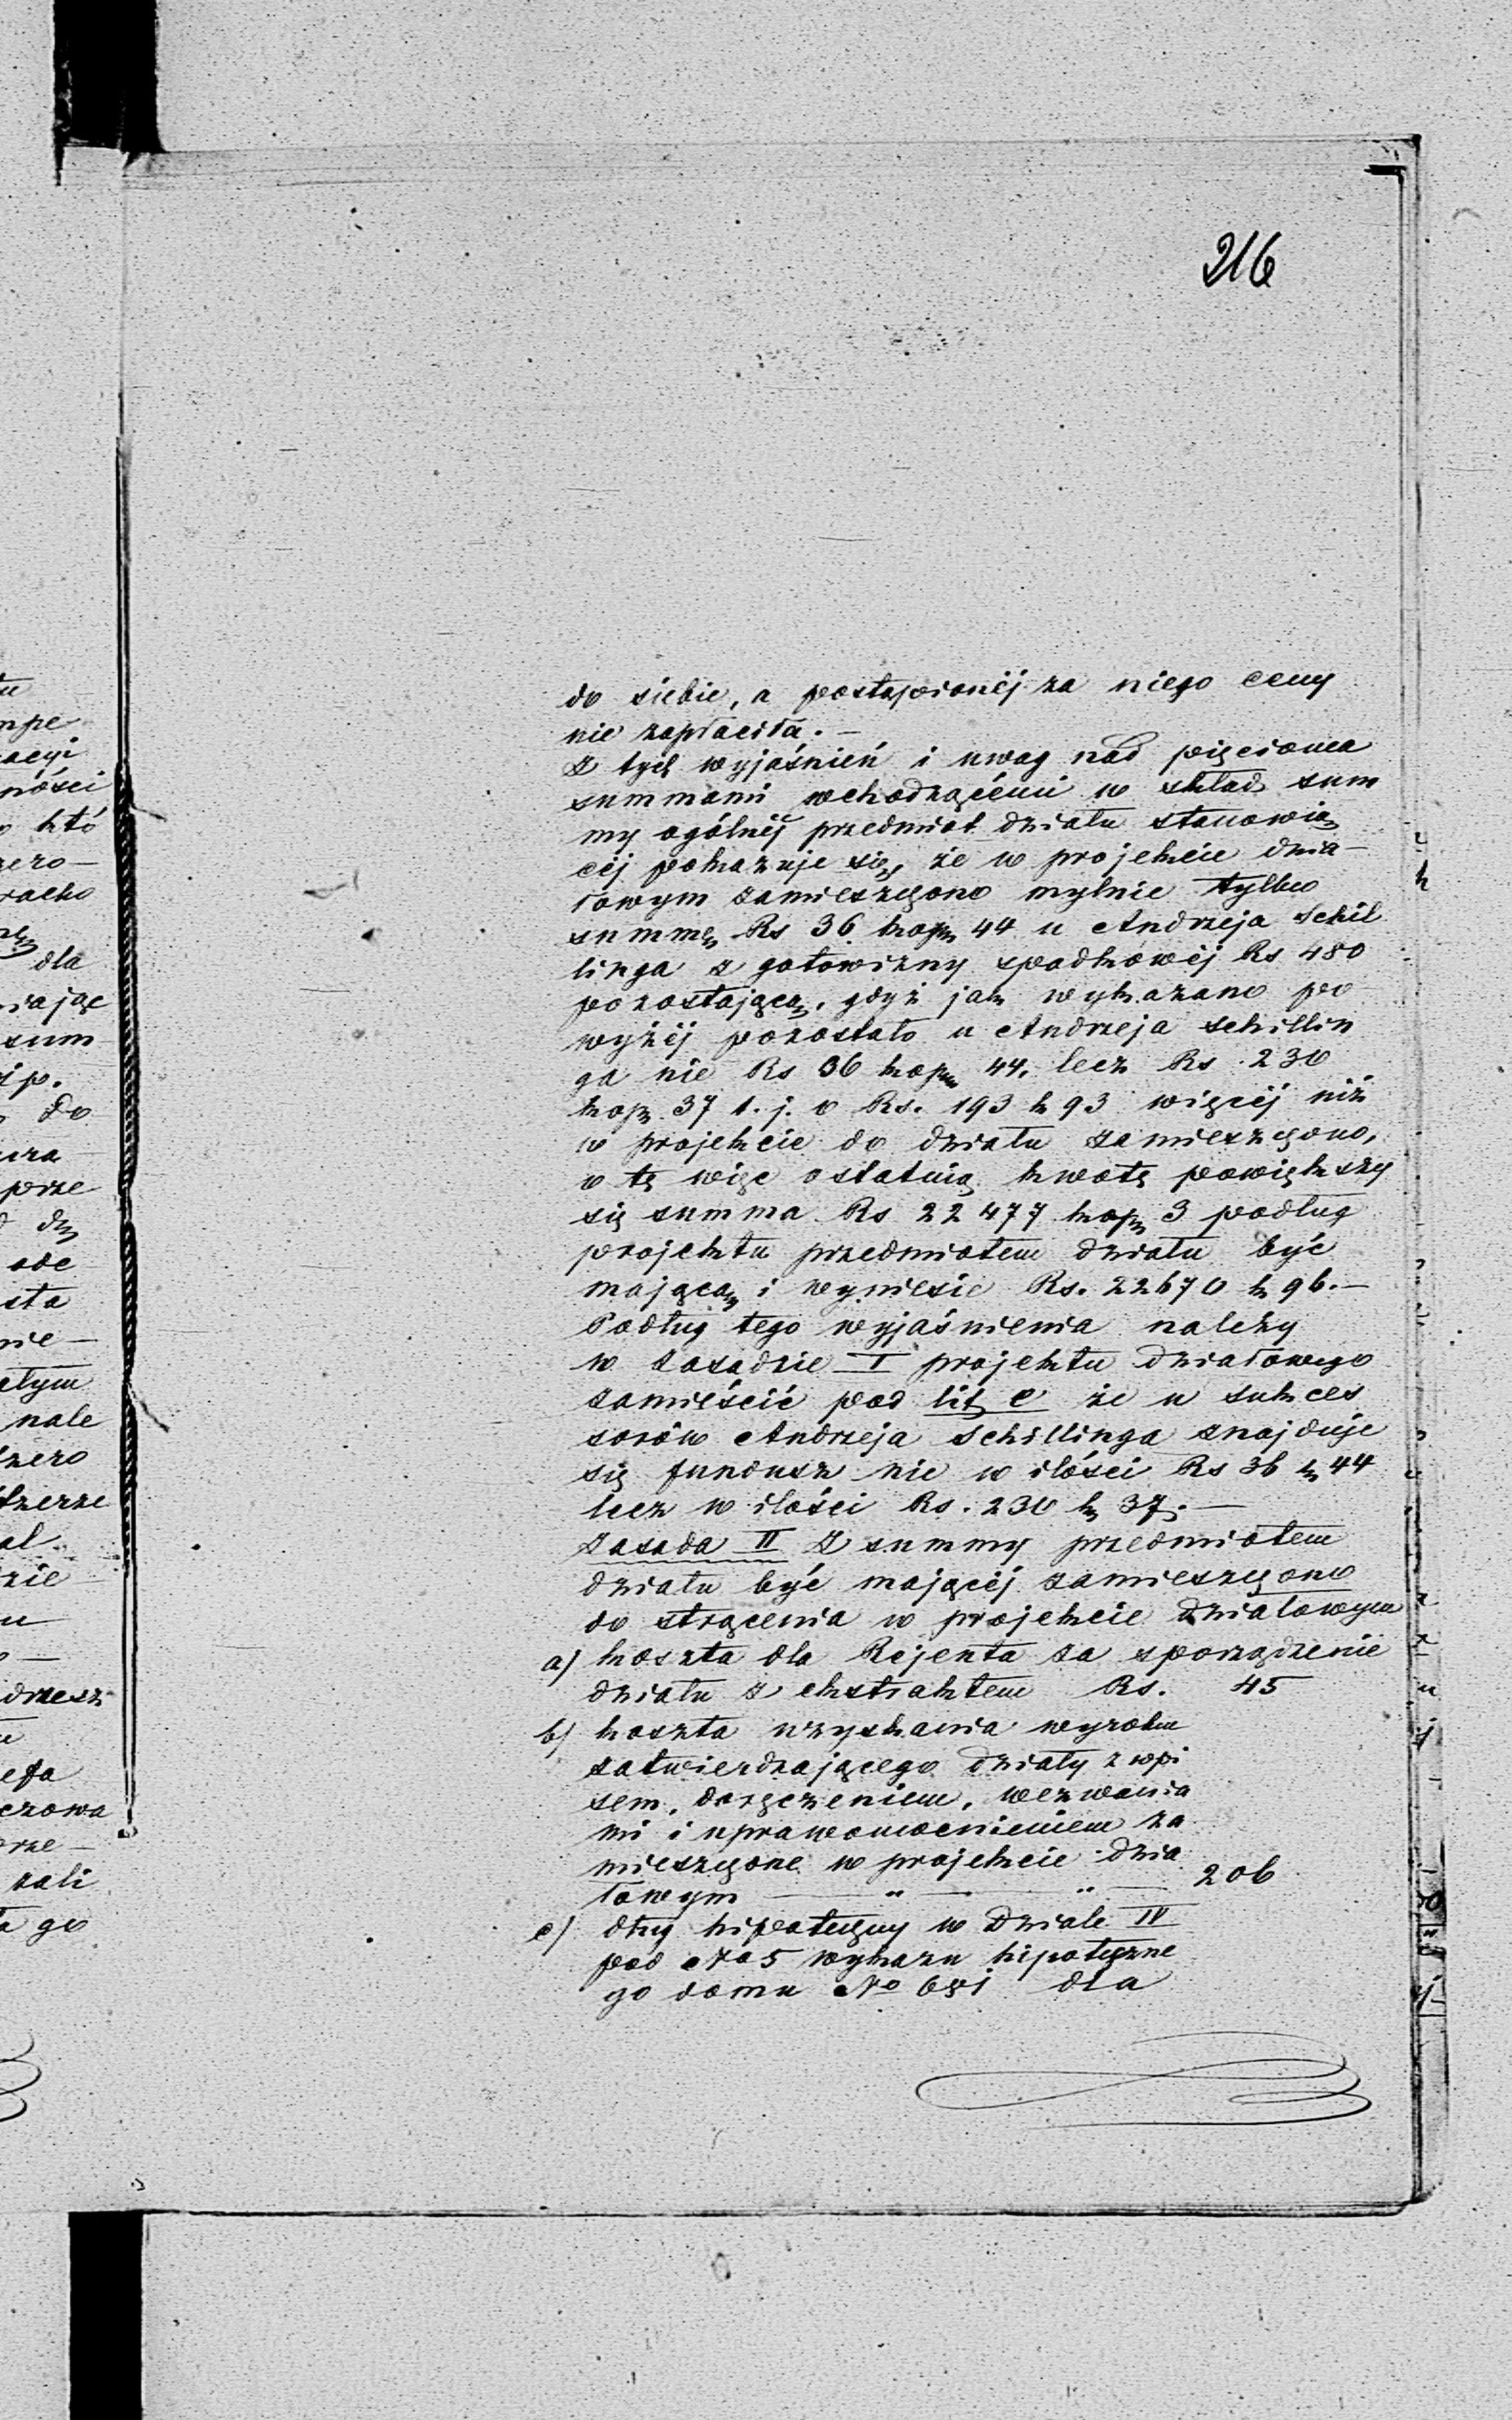 216
do siebie, a postąpionéj za niego ceny
nie zapłaciła. —
Z tych wyjaśnień i uwag nad pięcioma
summami wchodzącémi w skład sum
my ogólnéj przedmiot działu stanowią
céj pokazuje się, że w projekcie dzia-
łowym zamieszczono mylnie tylko
summę Rs 36 kop. 44 u Andrzeja Schil
linga z gotowizny spadkowéj Rs 480
pozostającą, gdyż jak wykazano po
wyżéj pozostało u Andrzeja Schillin
ga nie Rs 36 kop. 44, lecz Rs. 230
kop. 37 t. j. o Rs. 193 k 93 więcéj niż
w projekcie do działu zamieszczono,
o tę więc ostatnią kwotę powiększy
się summa Rs 22477 kop. 3 podług
projektu przedmiotem działu być
mającą i wyniesie Rs. 22670 k 96. —
Podług tego wyjaśnienia należy
w zasadzie I projektu działowego
zamieścić pod lit. e że u sukces
sorów Andrzeja Schillinga znajduje
się fundusz nie w ilości Rs 36 k 44
lecz w ilości Rs. 230 k 37. —
Zasada II Z summy przedmiotem
działu być mającéj zamieszczono
do strącenia w projekcie działowym
a) koszta dla Rejenta za sporządzenie
działu z ekstraktem Rs. 45
b) koszta uzyskania wyroku
zatwierdzającego działy z wpi
sem, doręczeniem, wezwania
mi i uprawomocnieniem za
mieszczone w projekcie dzia
łowym — " — " — 206
c) dług hipoteczny w Dziale IV
pod No 5 wykazu hipoteczne
go domu No 691 dla